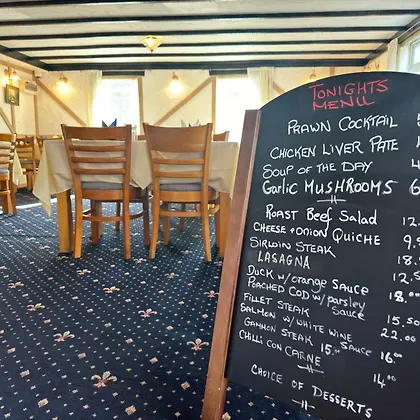 TONIGHTS
MENU
PRAWN COCKTAIL
CHICKEN LIVER PATE
SOUP OF THE DAY
GARLIC MUSHROOMS 6
ROAST BEEF SALAD 12.
CHEESE + ONION QUICHE 9.5
SIRLOIN STEAK 18.
LASAGNA 12.5
DUCK W/ ORANGE SAUCE 18.00
POACHED COD W/ PARSLEY SAUCE 15.50
FILLET STEAK 22.00
SALMON W/ WHITE WINE SAUCE 16.00
GAMMON STEAK 15.00
CHILLI CON CARNE 14.00
CHOICE OF DESSERTS